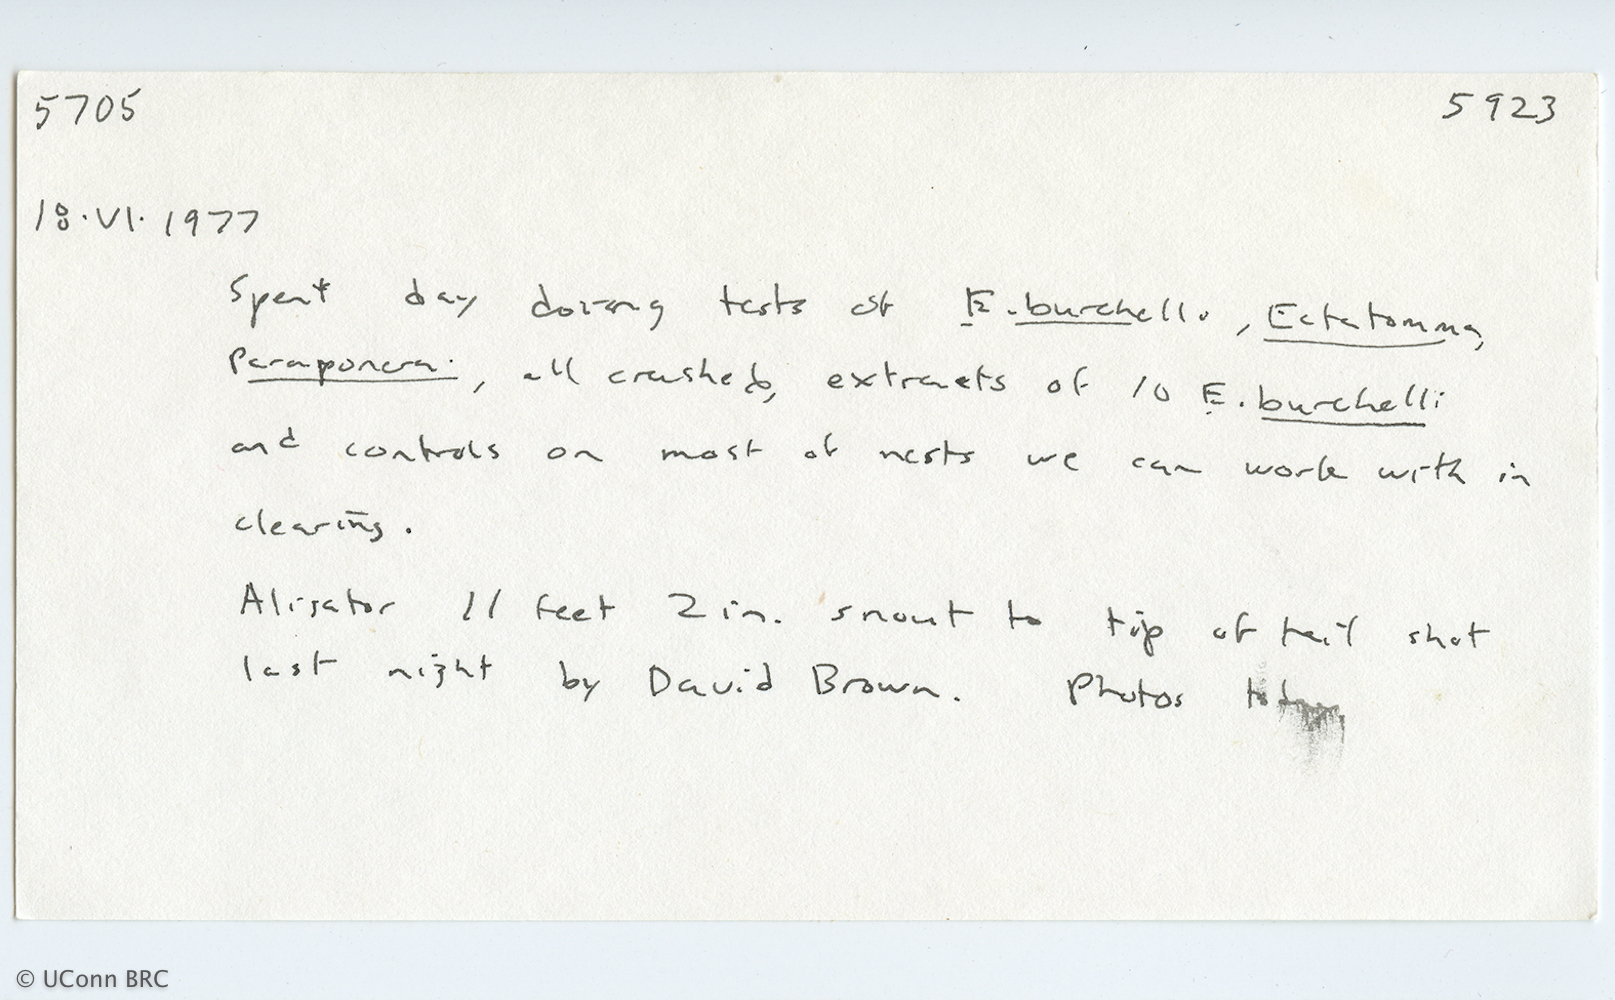 5705 5923
18.VI.1977
Spent day doing tests of E. burchelli, Ectatomma,
Paraponera, all crushed, extracts of 10 E. burchelli
and controls on most of nests we can work with in
clearing.
Aligator 11 feet 2 in. snout to tip of tail shot
last night by David Brown. Photos
© UConn BRC